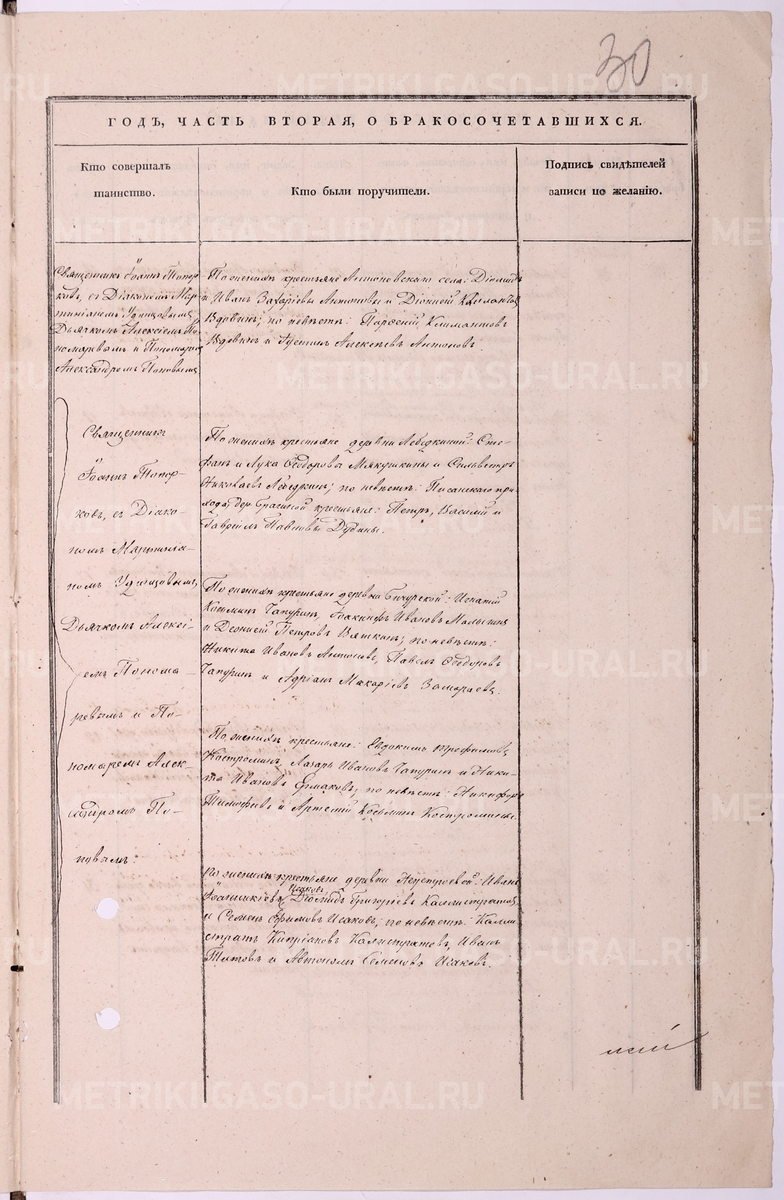 30
ГОДЪ, ЧАСТЬ ВТОРАЯ, О БРАКОСОЧЕТАВШИХСЯ.
Кто совершалъ
таинство.
Кто были поручители.
Подпись свидѣтелей
записи по желанію.
Священникъ Іоаннъ Топор-
ковъ, съ Діакономъ Мар-
тиніаномъ Удинцовымъ,
Дьячкомъ Алексіемъ По-
номаревымъ и Пономаремъ
Александромъ Поповымъ
По женихѣ крестьяне Антоновскаго села: Діомидъ
и Иванъ Захаріевы Антоновы и Діонисій
Вдовинъ; по невѣстѣ: Парѳеній Климантовъ
Вдовинъ и Іустинъ Алексѣевъ Антоновъ.
Священникъ
Іоаннъ Топор-
ковъ, съ Діако-
номъ Мартиніа-
номъ Удинцовымъ,
Дьячкомъ Алексі-
емъ Понома-
ревымъ и По-
номаремъ Алек-
сандромъ По-
повымъ
По женихѣ крестьяне деревни Лебедкиной: Сте-
фанъ и Лука Ѳеодоровы Мякушкины и Сильвестръ
Николаевъ Лебедкинъ; по невѣстѣ: Писанскаго при-
хода, дер. Брагиной крестьяне: Петръ, Василій и
Гавріилъ Павловы Дудины.
По женихѣ крестьяне деревни Бичурской: Игнатій
Косминъ Чапуринъ, Іоакинфъ Ивановъ Малыгинъ
и Деонисій Петровъ Вяткинъ; по невѣстѣ:
Никита Ивановъ Антоновъ, Павелъ Ѳеодоровъ
Чапуринъ и Адріанъ Макаріевъ Замараевъ.
По женихѣ крестьяне: Евдокимъ Трофимовъ
Костроминъ, Лазарь Ивановъ Чапуринъ и Ники-
та Ивановъ Ермаковъ; по невѣстѣ: Никифоръ
Тимофѣевъ и Артемій Косьминъ Костромины.
По женихѣ крестьяне деревни: Иванъ
Исаковъ,
Іоанникіевъ Діомидъ Григоріевъ Каллистратовъ
и Семенъ Ефимовъ Исаковъ; по невѣстѣ: Калли-
стратъ Кипріановъ Калистратовъ, Иванъ
Титовъ и Автономъ Семеновъ Исаковъ.
METRIKI.GASO-URAL.RU